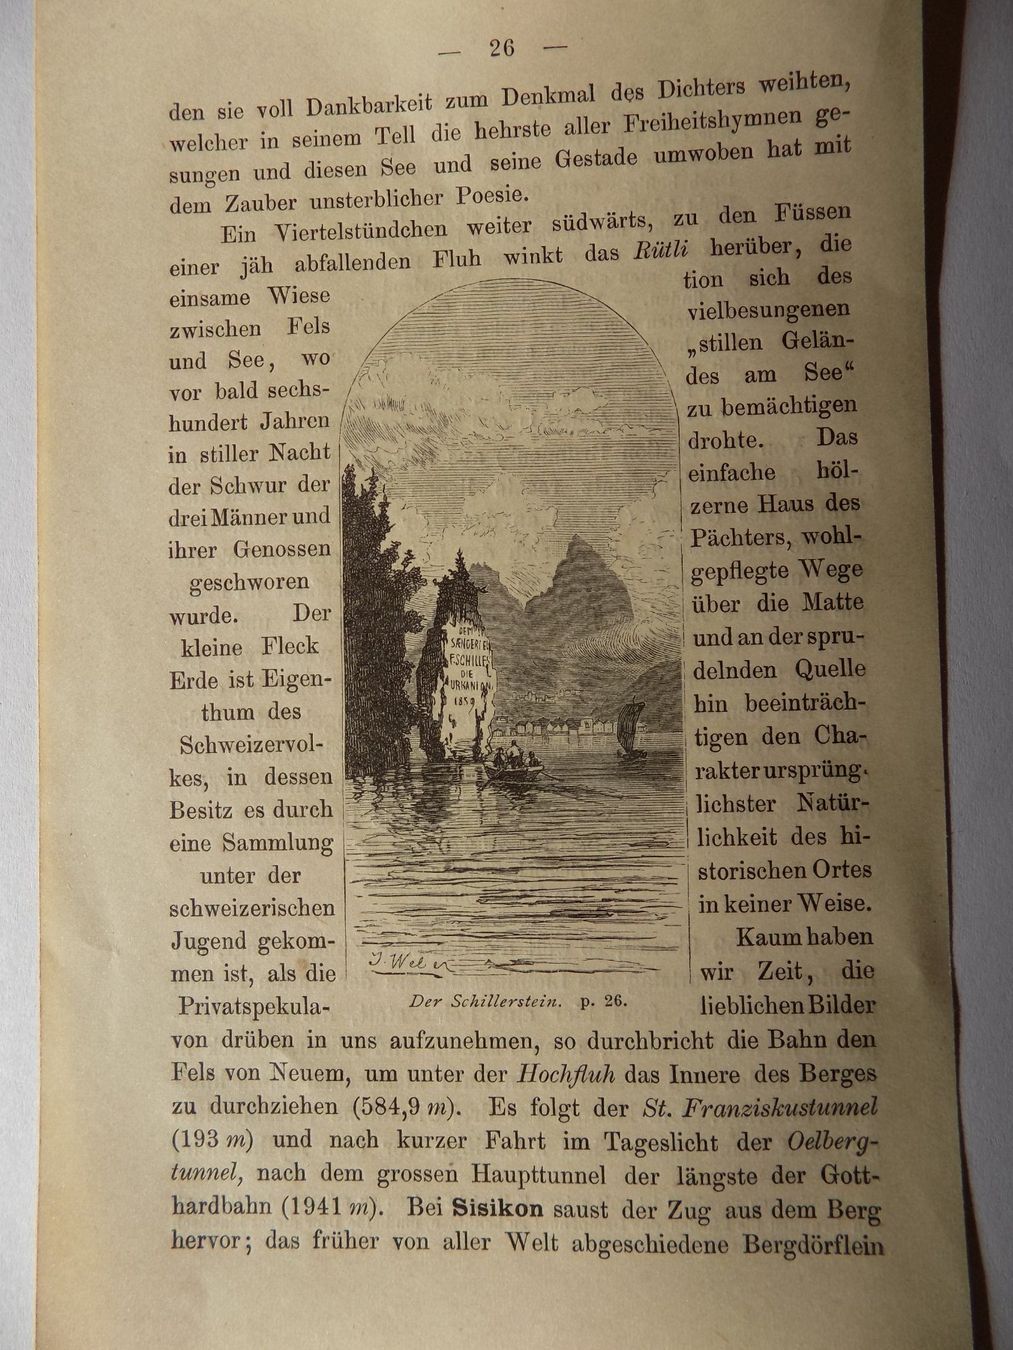 — 26 —
den sie voll Dankbarkeit zum Denkmal des Dichters weihten,
welcher in seinem Tell die hehrste aller Freiheitshymnen ge-
sungen und diesen See und seine Gestade umwoben hat mit
dem Zauber unsterblicher Poesie.
Ein Viertelstündchen weiter südwärts, zu den Füssen
einer jäh abfallenden Fluh winkt das Rütli herüber, die
einsame Wiese
zwischen Fels
und See, wo
vor bald sechs-
hundert Jahren
in stiller Nacht
der Schwur der
drei Männer und
ihrer Genossen
geschworen
wurde. Der
kleine Fleck
Erde ist Eigen-
thum des
Schweizervol-
kes, in dessen
Besitz es durch
eine Sammlung
unter der
schweizerischen
Jugend gekom-
men ist, als die
Privatspekula-
tion sich des
vielbesungenen
„stillen Gelän-
des am See“
zu bemächtigen
drohte. Das
einfache höl-
zerne Haus des
Pächters, wohl-
gepflegte Wege
über die Matte
und an der spru-
delnden Quelle
hin beeinträch-
tigen den Cha-
rakter ursprüng-
lichster Natür-
lichkeit des hi-
storischen Ortes
in keiner Weise.
Kaum haben
wir Zeit, die
lieblichen Bilder
DEM
SÆNGER TEL
F. SCHILLER
DIE
URKANTON
1859
J. Weber
Der Schillerstein. p. 26.
von drüben in uns aufzunehmen, so durchbricht die Bahn den
Fels von Neuem, um unter der Hochfluh das Innere des Berges
zu durchziehen (584,9 m). Es folgt der St. Franziskustunnel
(193 m) und nach kurzer Fahrt im Tageslicht der Oelberg-
tunnel, nach dem grossen Haupttunnel der längste der Gott-
hardbahn (1941 m). Bei Sisikon saust der Zug aus dem Berg
hervor; das früher von aller Welt abgeschiedene Bergdörflein